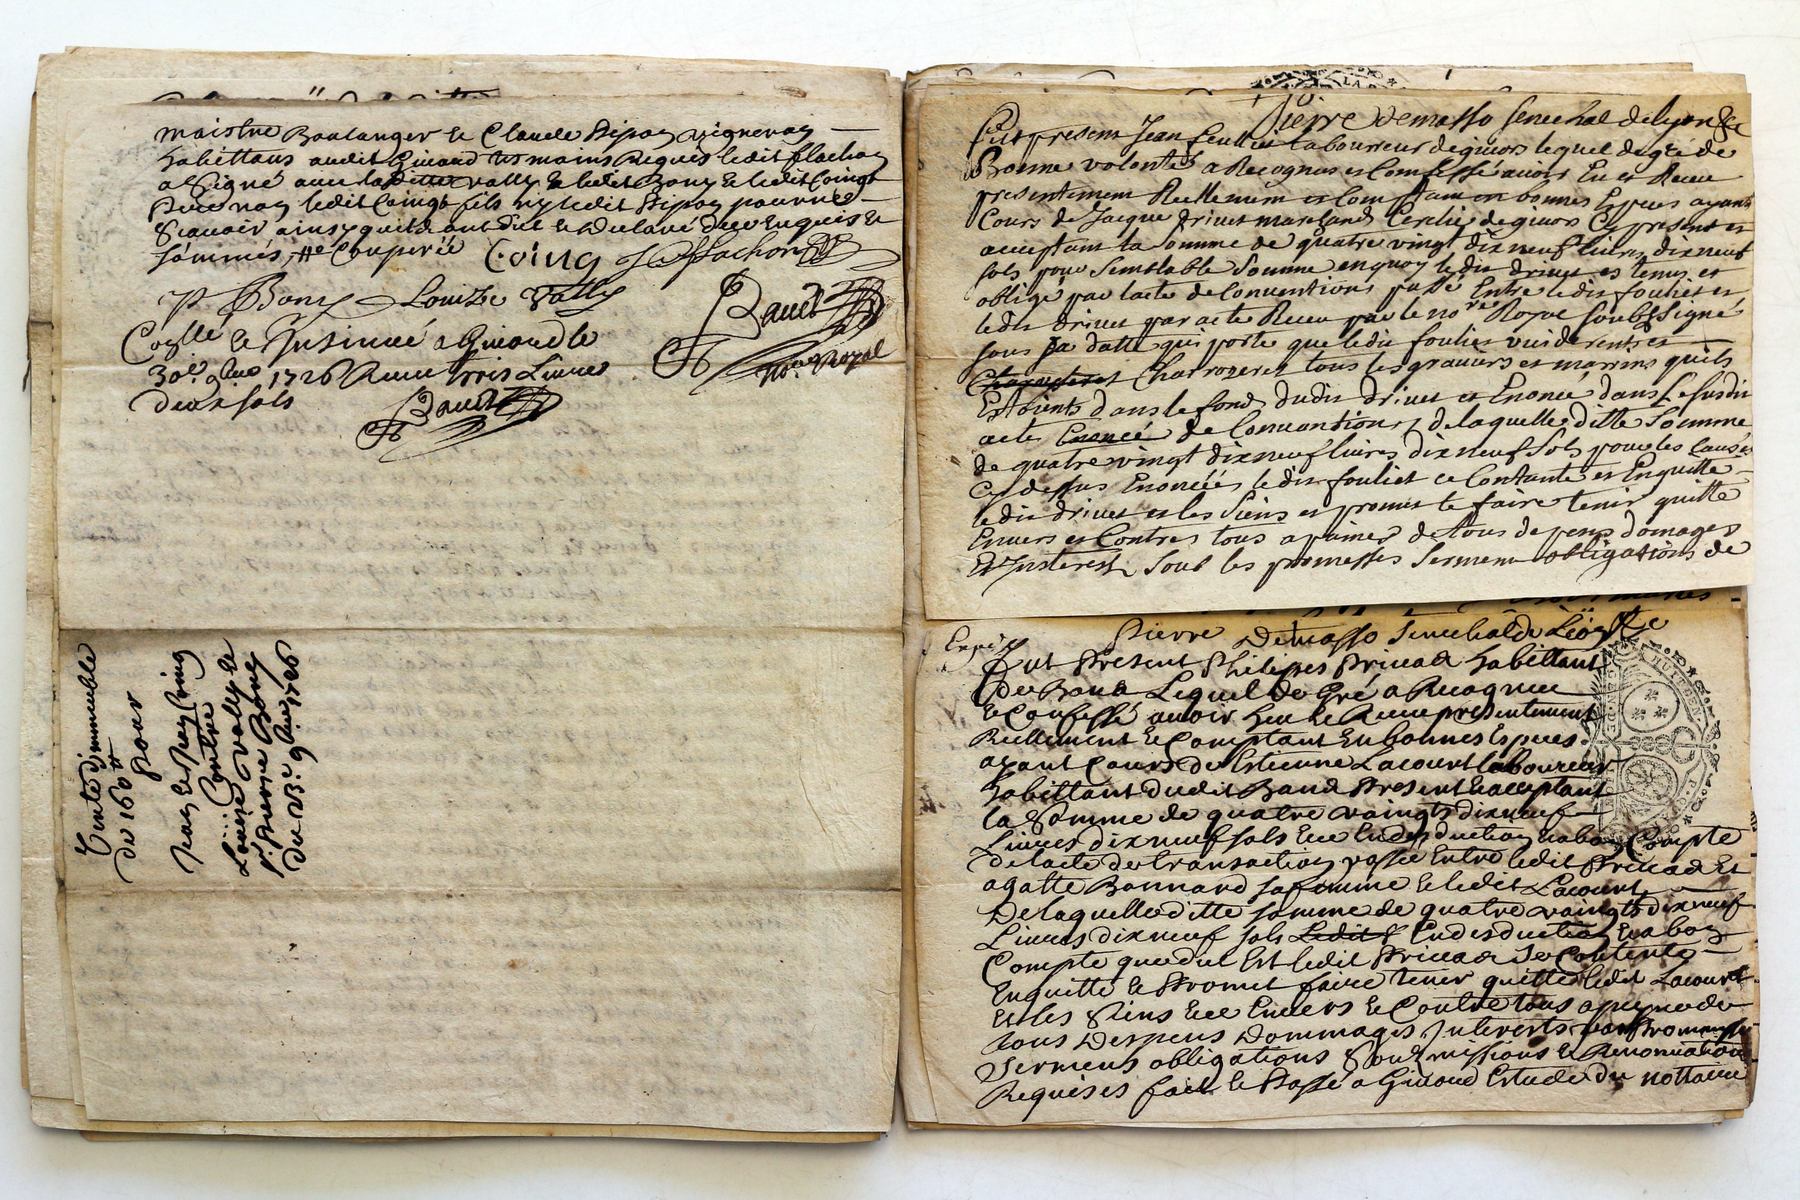 maistre Boulanger & Claude Dipoy vigneron
habittans audit Givord tesmoins Requis ledit flachon
a Signé avec laditte vally & ledit Bony & ledit Coingt
Pere non ledit Coingt fils ny ledit Dipoy pour ne
Scavoir ainsy quils ont dit & declaré de ce Enquis &
Sommés
Coing Flachon
P Bony Louize Vally
Baud
no.re Royal
Coñllé & Insinué a Givord le
30e. 9bre 1726 Receu trois Livres
deux sols
Baud
Vente d'immeuble
de 160 tt
pour
Jean Coing
Contre
Louise vally &
Sr. pierre Bony
du 9bre 1726
Pierre demasso Senechal de lyon &c
fut present Jean foulliet Labourreur de givors lequel de gré de
Bonne volonté a Recognus et Confessé avoir Eu et Receu
presentement Reellemem et Comptam en bonnes Especes ayant
Cours de Jacque drivet marchand de givors Cy present et
acceptant la Somme de quatre vingt dix neuf livres dix neuf
sols pour Semblable Somme en quoy ledit drivet est tenus et
obligé par lacte de Conventions passé Entre ledit foulliet et
ledit drivet par acte Receu par le nore Royal Soubsigné
sous sa datte qui porte que ledit foulliet vuideront et
Charroyeret tous les graviers et marrins quils
Estoients dans le fond dudit drivet et Enoncé dans Le susdit
acte Enoncé de Convantions, de laquelle ditte Somme
de quatre vingt dix neuf livres dix neuf Sols pour les causes
Cy dessus Enoncées ledit foulliet ce Contante et En quitte
ledit drivet et les Siens et promet le faire tenir quitte
Envers et Contres tous a paines de tous depens domages
Et Interest, Soub les promesses Serment obligations de
Expié
Pierre Demasso Senechal de Lion &c
fut Present Philipes Privad habittant
de Bans Lequel de Gré a Recognu
& Confessé avoir heu & Receu presentement
Reellement & Comptant En bonnes Especes
ayant Cours de Estienne Lacourt laboureur
habittant dudit Bans Present & acceptant
la Somme de quatre vaingts dix neuf
Livres dix neuf sols En desduction & a bon Compte
de lacte de transaction passée Entre ledit Privad Et
agatte Bonnard sa femme & ledit Lacourt
De laquelle ditte somme de quatre vaingts dix neuf
Livres dix neuf sols Ledit En desduction & a bon
Compte que dit Est ledit Privad Se Contente
En quitte & Promet faire tenir quitte ledit Lacourt
Et les Siens Envers & Contre tous a peyne de
tous Despens Dommages Interests par Promesse
Serment obligations Soubmissions & Renonciations
Requises fait & Passé a Givord Estude du nottaire